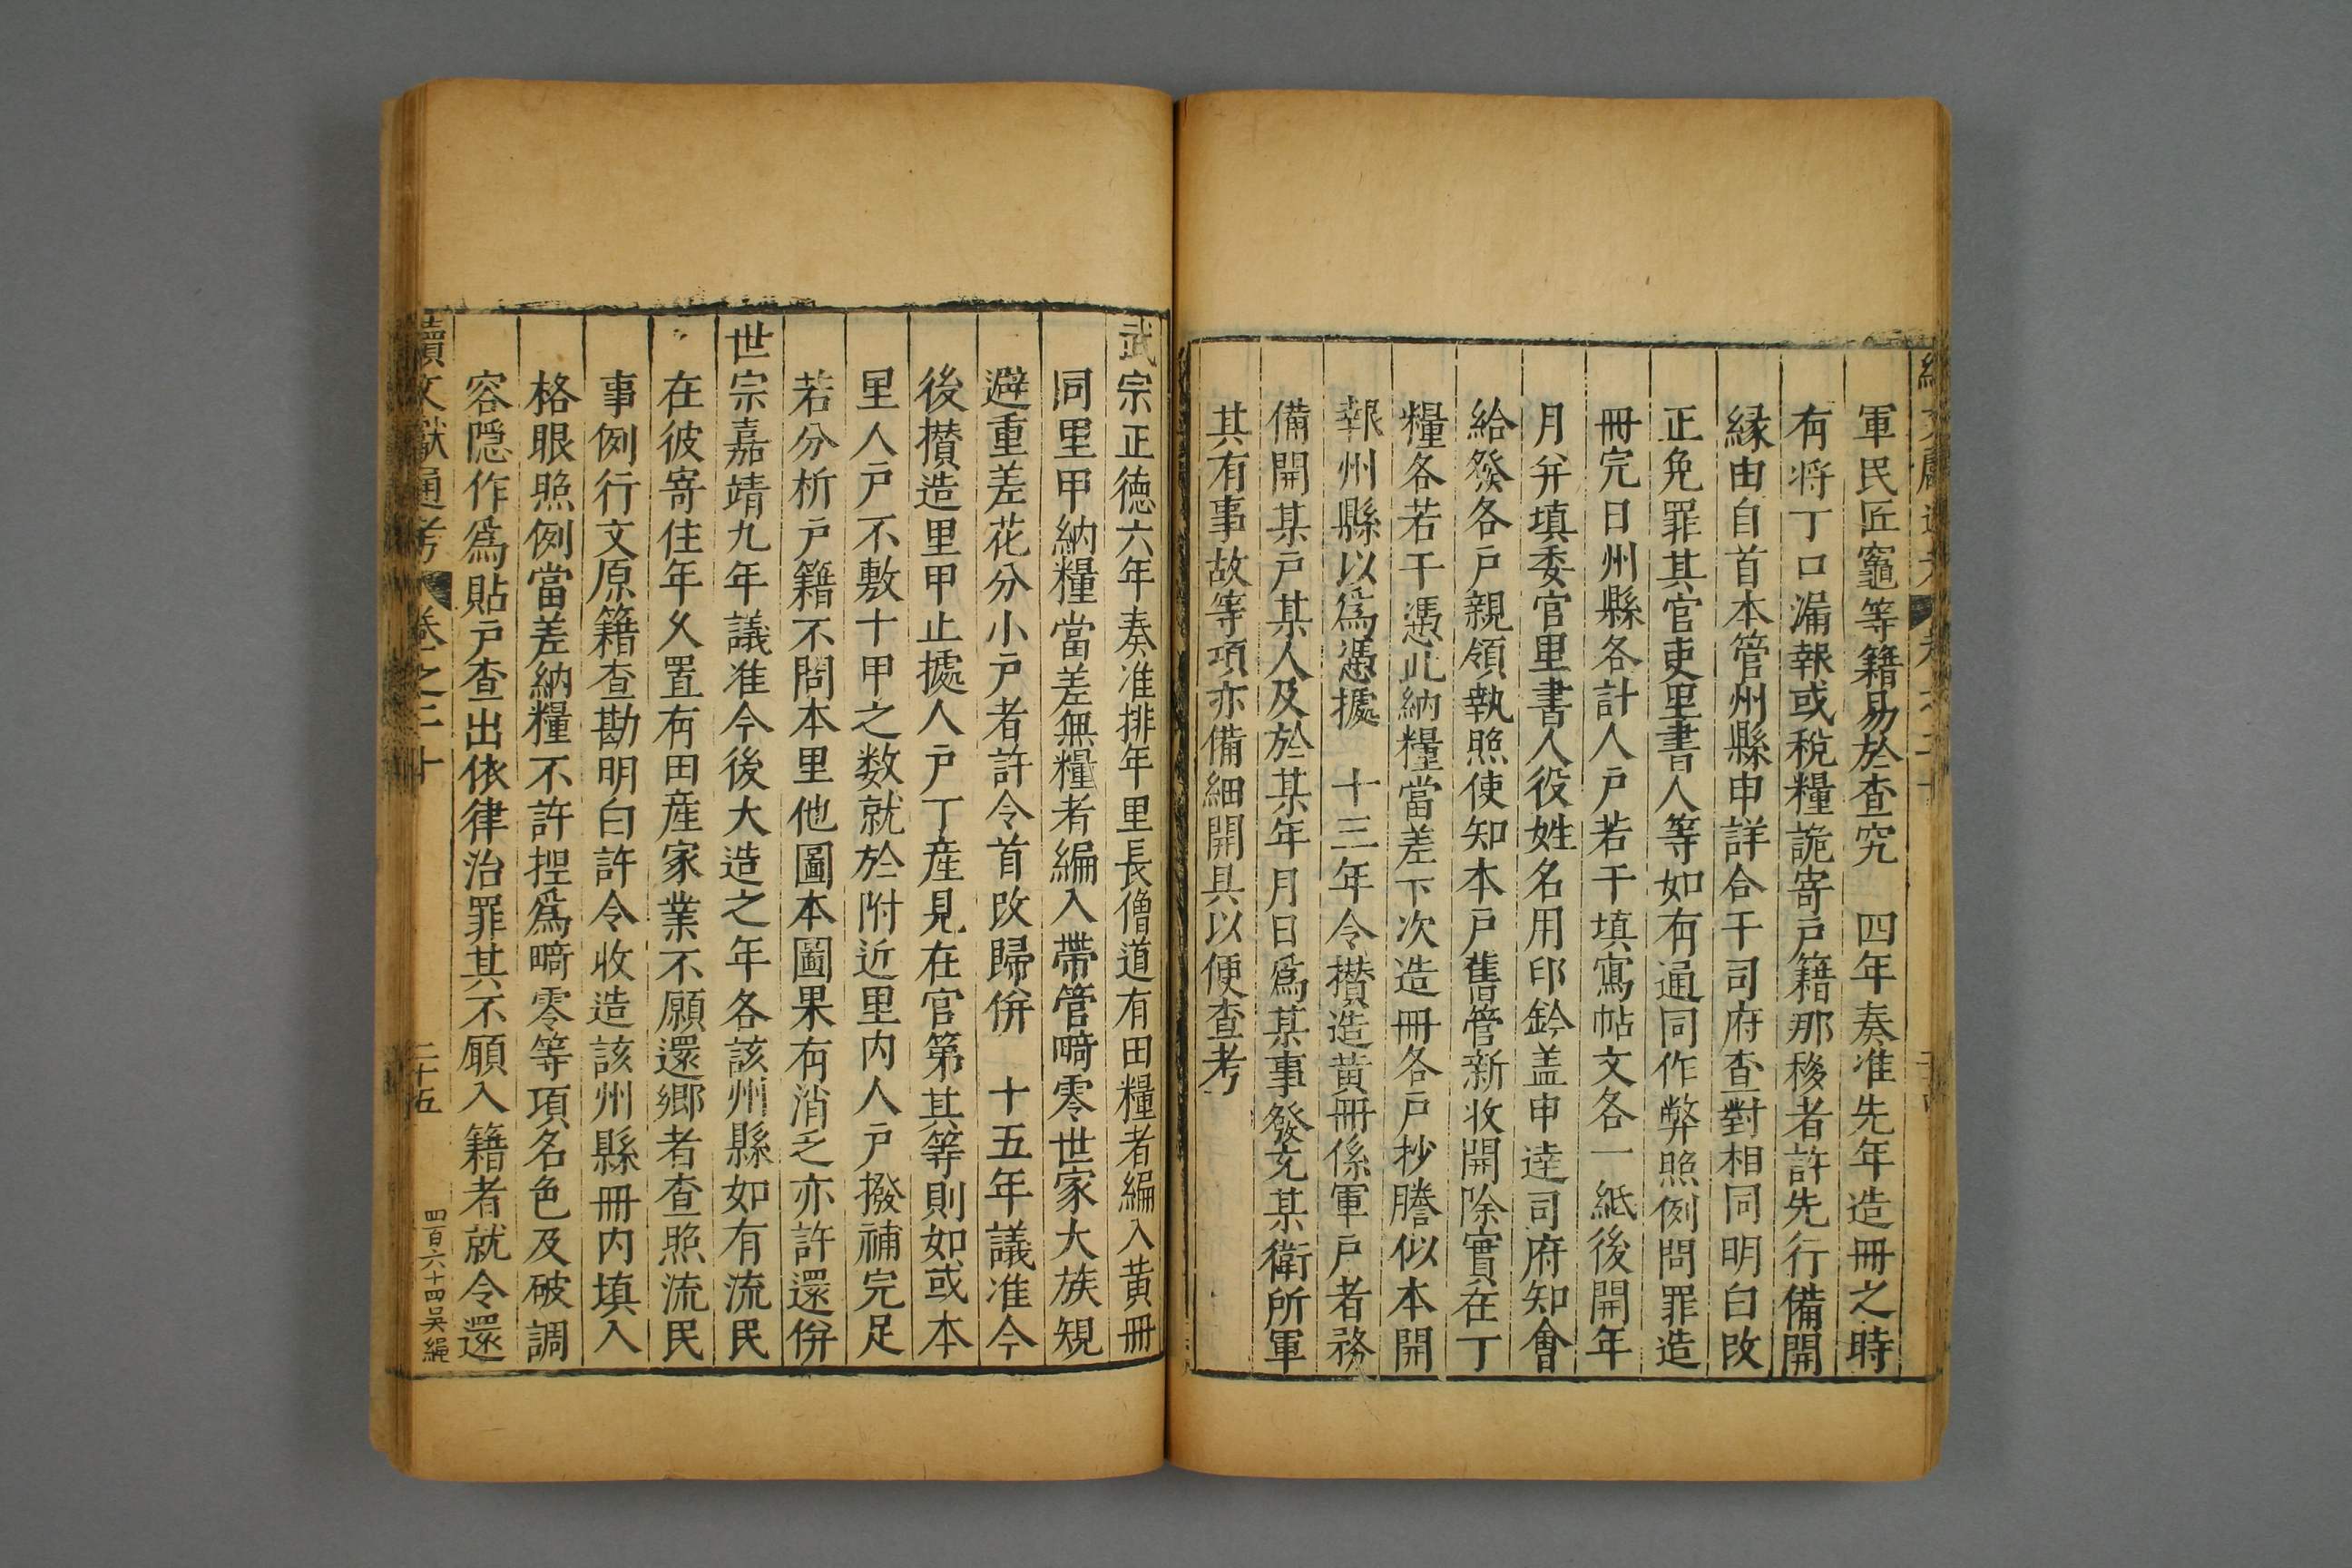 軍民匠竈等籍易於查究　四年奏准先年造冊之時
有将丁口漏報或稅糧詭寄戶籍那移者許先行備開
縁由自首本管州縣申詳合干司府查對相同明白改
正免罪其官吏里書人等如有通同作弊照例問罪造
冊完日州縣各計人戶若干填寫帖文各一紙後開年
月并填委官里書人役姓名用印鈐盖申逹司府知會
給發各戶親領執照使知本戶舊管新收開除實在丁
糧各若干憑此納糧當差下次造冊各戶抄謄似本開
報州縣以爲憑據　十三年令攅造黃冊係軍戶者務
備開某戶某人及於某年月日爲某事發充某衛所軍
其有事故等項亦備細開具以便查考
武宗正德六年奏准排年里長僧道有田糧者編入黃冊
同里甲納糧當差無糧者編入帶管畸零世家大族規
避重差花分小戶者許令首改歸併　十五年議准今
後攅造里甲止據人戶丁産見在官第其等則如或本
里人戶不敷十甲之数就於附近里內人戶撥補完足
若分析戶籍不問本里他圖本圖果有消乏亦許還併
世宗嘉靖九年議准今後大造之年各該州縣如有流民
在彼寄住年久置有田産家業不願還鄉者查照流民
事例行文原籍查勘明白許令收造該州縣冊內填入
格眼照例當差納糧不許捏爲畸零等項名色及破調
容隠作爲貼戶查出依律治罪其不願入籍者就令還
續文獻通考　卷之二十　二十五　四百六十四吴繩